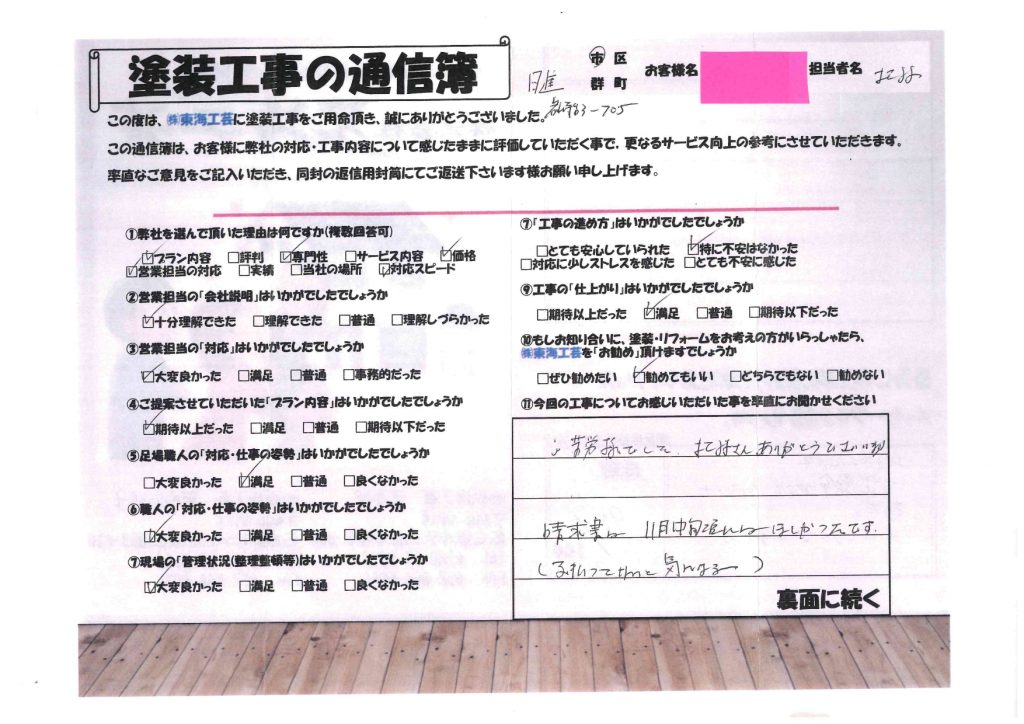 塗装工事の通信簿
市 区
群 町
お客様名
担当者名
3-705
この度は、㈱東海工芸に塗装工事をご用命頂き、誠にありがとうございました。
この通信簿は、お客様に弊社の対応・工事内容について感じたままに評価していただく事で、更なるサービス向上の参考にさせていただきます。
率直なご意見をご記入いただき、同封の返信用封筒にてご返送下さいます様お願い申し上げます。
①弊社を選んで頂いた理由は何ですか(複数回答可)
☑プラン内容 □評判 ☑専門性 □サービス内容 ☑価格
☑営業担当の対応 □実績 □当社の場所 ☑対応スピード
②営業担当の「会社説明」はいかがでしたでしょうか
☑十分理解できた □理解できた □普通 □理解しづらかった
③営業担当の「対応」はいかがでしたでしょうか
☑大変良かった □満足 □普通 □事務的だった
④ご提案させていただいた「プラン内容」はいかがでしたでしょうか
☑期待以上だった □満足 □普通 □期待以下だった
⑤足場職人の「対応・仕事の姿勢」はいかがでしたでしょうか
□大変良かった ☑満足 □普通 □良くなかった
⑥職人の「対応・仕事の姿勢」はいかがでしたでしょうか
☑大変良かった □満足 □普通 □良くなかった
⑦現場の「管理状況(整理整頓等)はいかがでしたでしょうか
☑大変良かった □満足 □普通 □良くなかった
⑦「工事の進め方」はいかがでしたでしょうか
□とても安心していられた ☑特に不安はなかった
□対応に少しストレスを感じた □とても不安に感じた
⑨工事の「仕上がり」はいかがでしたでしょうか
□期待以上だった ☑満足 □普通 □期待以下だった
⑩もしお知り合いに、塗装・リフォームをお考えの方がいらっしゃたら、
㈱東海工芸を「お勧め」頂けますでしょうか
□ぜひ勧めたい ☑勧めてもいい □どちらでもない □勧めない
⑪今回の工事についてお感じいただいた事を率直にお聞かせください
ご苦労様でした、 さんありがとうございます
請求書は 11月中旬 ほしかったです.
気になる
裏面に続く